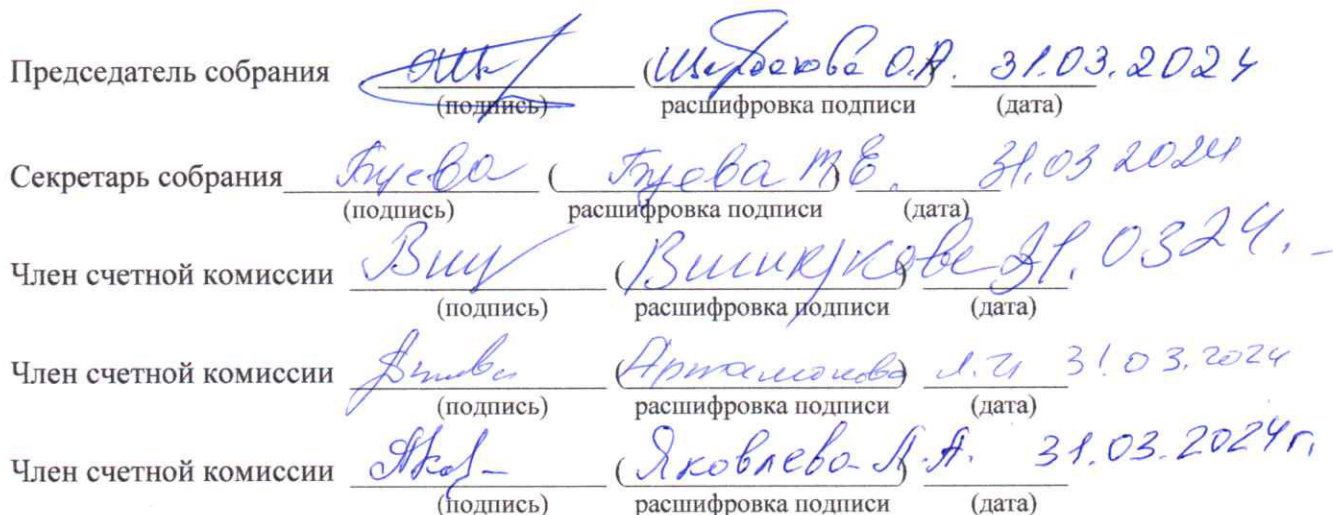 Председатель собрания (Щербакова О.А.) 31.03.2024
(подпись) расшифровка подписи (дата)
Секретарь собрания Буева (Буева Т.Е.) 31.03 2024
(подпись) расшифровка подписи (дата)
Член счетной комиссии () 31.0324.
(подпись) расшифровка подписи (дата)
Член счетной комиссии (Артамонова) Л.И 31.03.2024
(подпись) расшифровка подписи (дата)
Член счетной комиссии (Яковлева Л.А.) 31.03.2024г.
(подпись) расшифровка подписи (дата)